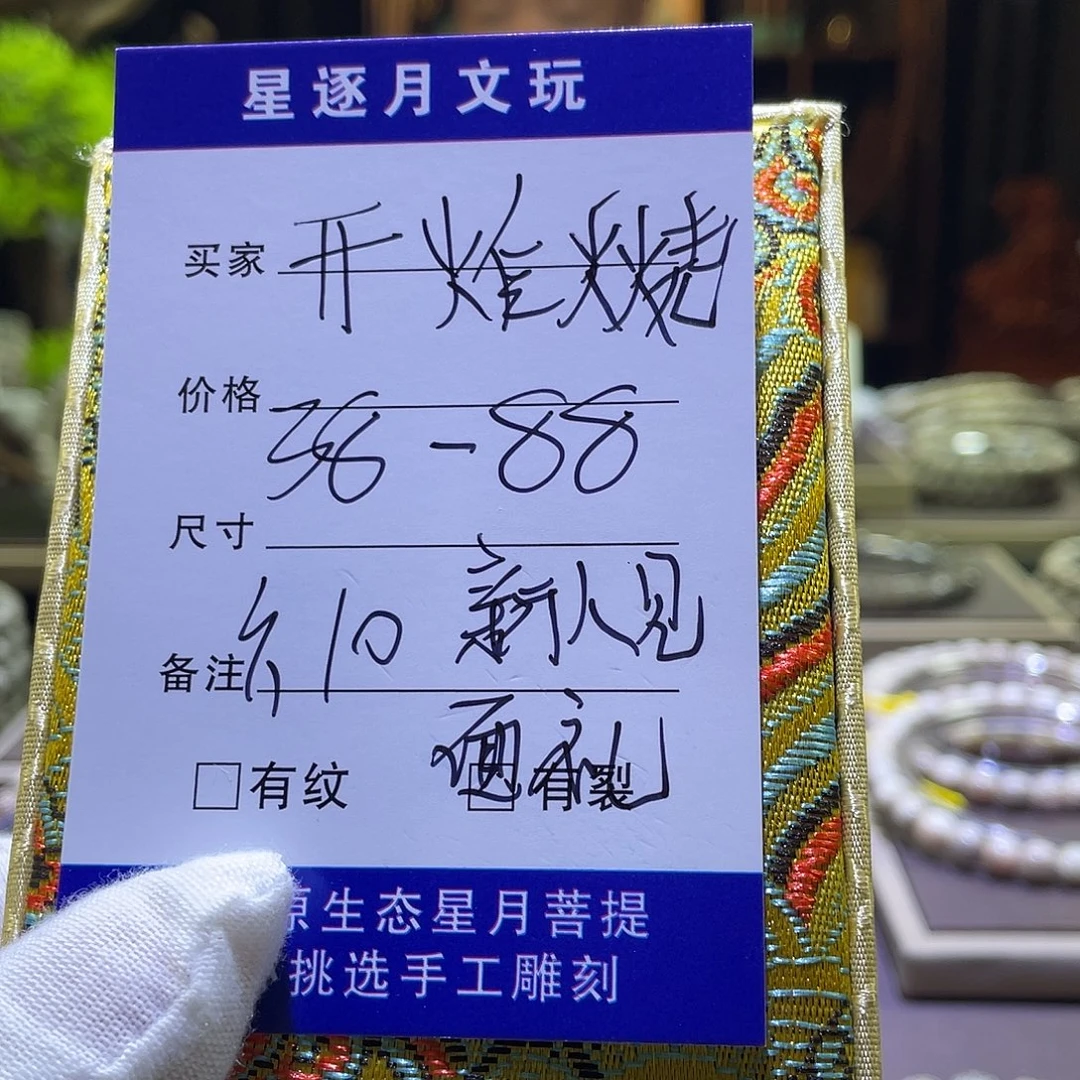 星逐月文玩
买家 开炝火烧
价格 38-88
尺寸
备注 10 新人见
面礼
有纹 有裂
原生态星月菩提
挑选手工雕刻